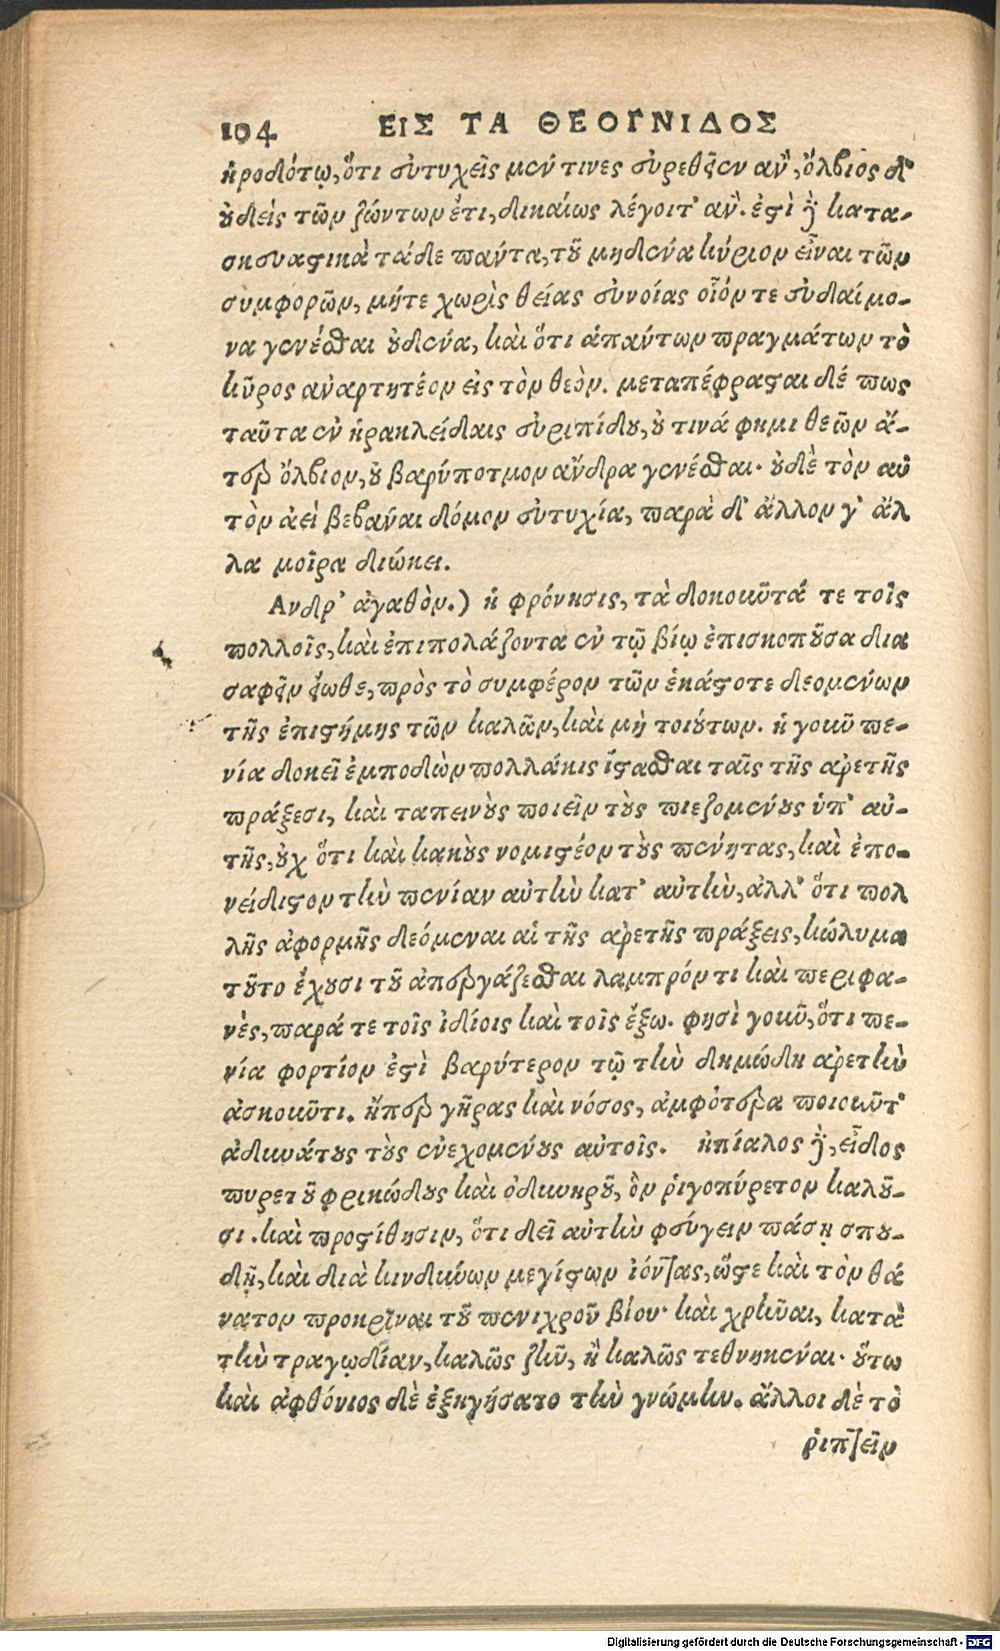 104 ΕΙΣ ΤΑ ΘΕΟΓΝΙΔΟΣ
ἡροδότῳ, ὅτι εὐτυχεῖς μέν τινες εὑρεθεῖεν ἂν, ὄλβιος δ'
οὐδεὶς τῶν ζώντων ἔτι, δικαίως λέγοιτ' ἄν. ἐστὶ δὲ κατα-
σκευαστικὰ τάδε πάντα, τοῦ μηδένα κύριον εἶναι τῶν
συμφορῶν, μήτε χωρὶς θείας εὐνοίας οἷόν τε εὐδαίμο-
να γενέσθαι οὐδένα, καὶ ὅτι ἁπάντων πραγμάτων τὸ
κῦρος ἀναρτητέον εἰς τὸν θεόν. μεταπέφρασται δέ πως
ταῦτα ἐν ἡρακλείδαις εὐριπίδου, οὔ τινά φημι θεῶν ἄ-
τερ ὄλβιον, οὐ βαρύποτμον ἄνδρα γενέσθαι· οὐδὲ τὸν αὐ
τὸν ἀεὶ βεβάναι δόμον εὐτυχία, παρὰ δ' ἄλλον γ' ἄλ
λα μοῖρα διώκει.
Ανδρ' ἀγαθὸν.) ἡ φρόνησις, τὰ δοκοῦντά τε τοῖς
πολλοῖς, καὶ ἐπιπολάζοντα ἐν τῷ βίῳ ἐπισκοποῦσα δια
σαφεῖν εἴωθε, πρὸς τὸ συμφέρον τῶν ἑκάστοτε δεομένων
τῆς ἐπιστήμης τῶν καλῶν, καὶ μὴ τοιούτων. ἡ γοῦν πε-
νία δοκεῖ ἐμποδὼν πολλάκις ἵστασθαι ταῖς τῆς ἀρετῆς
πράξεσι, καὶ ταπεινοὺς ποιεῖν τοὺς πιεζομένους ὑπ' αὐ-
τῆς, οὐχ ὅτι καὶ κακοὺς νομιστέον τοὺς πένητας, καὶ ἐπο-
νείδιστον τὴν πενίαν αὐτὴν κατ' αὐτὴν, ἀλλ' ὅτι πολ
λῆς ἀφορμῆς δεόμεναι αἱ τῆς ἀρετῆς πράξεις, κώλυμα
τοῦτο ἔχουσι τοῦ ἀπεργάζεσθαι λαμπρόν τι καὶ περιφα-
νὲς, παρά τε τοῖς ἰδίοις καὶ τοῖς ἔξω. φησὶ γοῦν, ὅτι πε-
νία φορτίον ἐστὶ βαρύτερον τῷ τὴν δημώδη ἀρετὴν
ἀσκοῦντι. ἤπερ γῆρας καὶ νόσος, ἀμφότερα ποιοῦντ'
ἀδυνάτους τοὺς ἐνεχομένους αὐτοῖς. ἠπίαλος δὲ, εἶδος
πυρετοῦ φρικώδους καὶ ὀδυνηροῦ, ὃν ῥιγοπύρετον καλοῦ-
σι. καὶ προστίθησιν, ὅτι δεῖ αὐτὴν φεύγειν πάσῃ σπου-
δῇ, καὶ διὰ κινδύνων μεγίστων ἰόντας, ὥστε καὶ τὸν θά
νατον προκρῖναι τοῦ πενιχροῦ βίου· καὶ χρῆναι, κατὰ
τὴν τραγῳδίαν, καλῶς ζῆν, ἢ καλῶς τεθνηκέναι· οὕτω
καὶ ἀφθόνιος δὲ ἐξηγήσατο τὴν γνώμην. ἄλλοι δὲ τὸ
ῥιπτεῖν
Digitalisierung gefördert durch die Deutsche Forschungsgemeinschaft - DFG